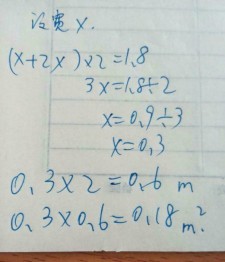 设宽x.
(x+2x)×2=1.8
3x=1.8÷2
x=0.9÷3
x=0.3
0.3×2=0.6 m
0.3×0.6=0.18m².